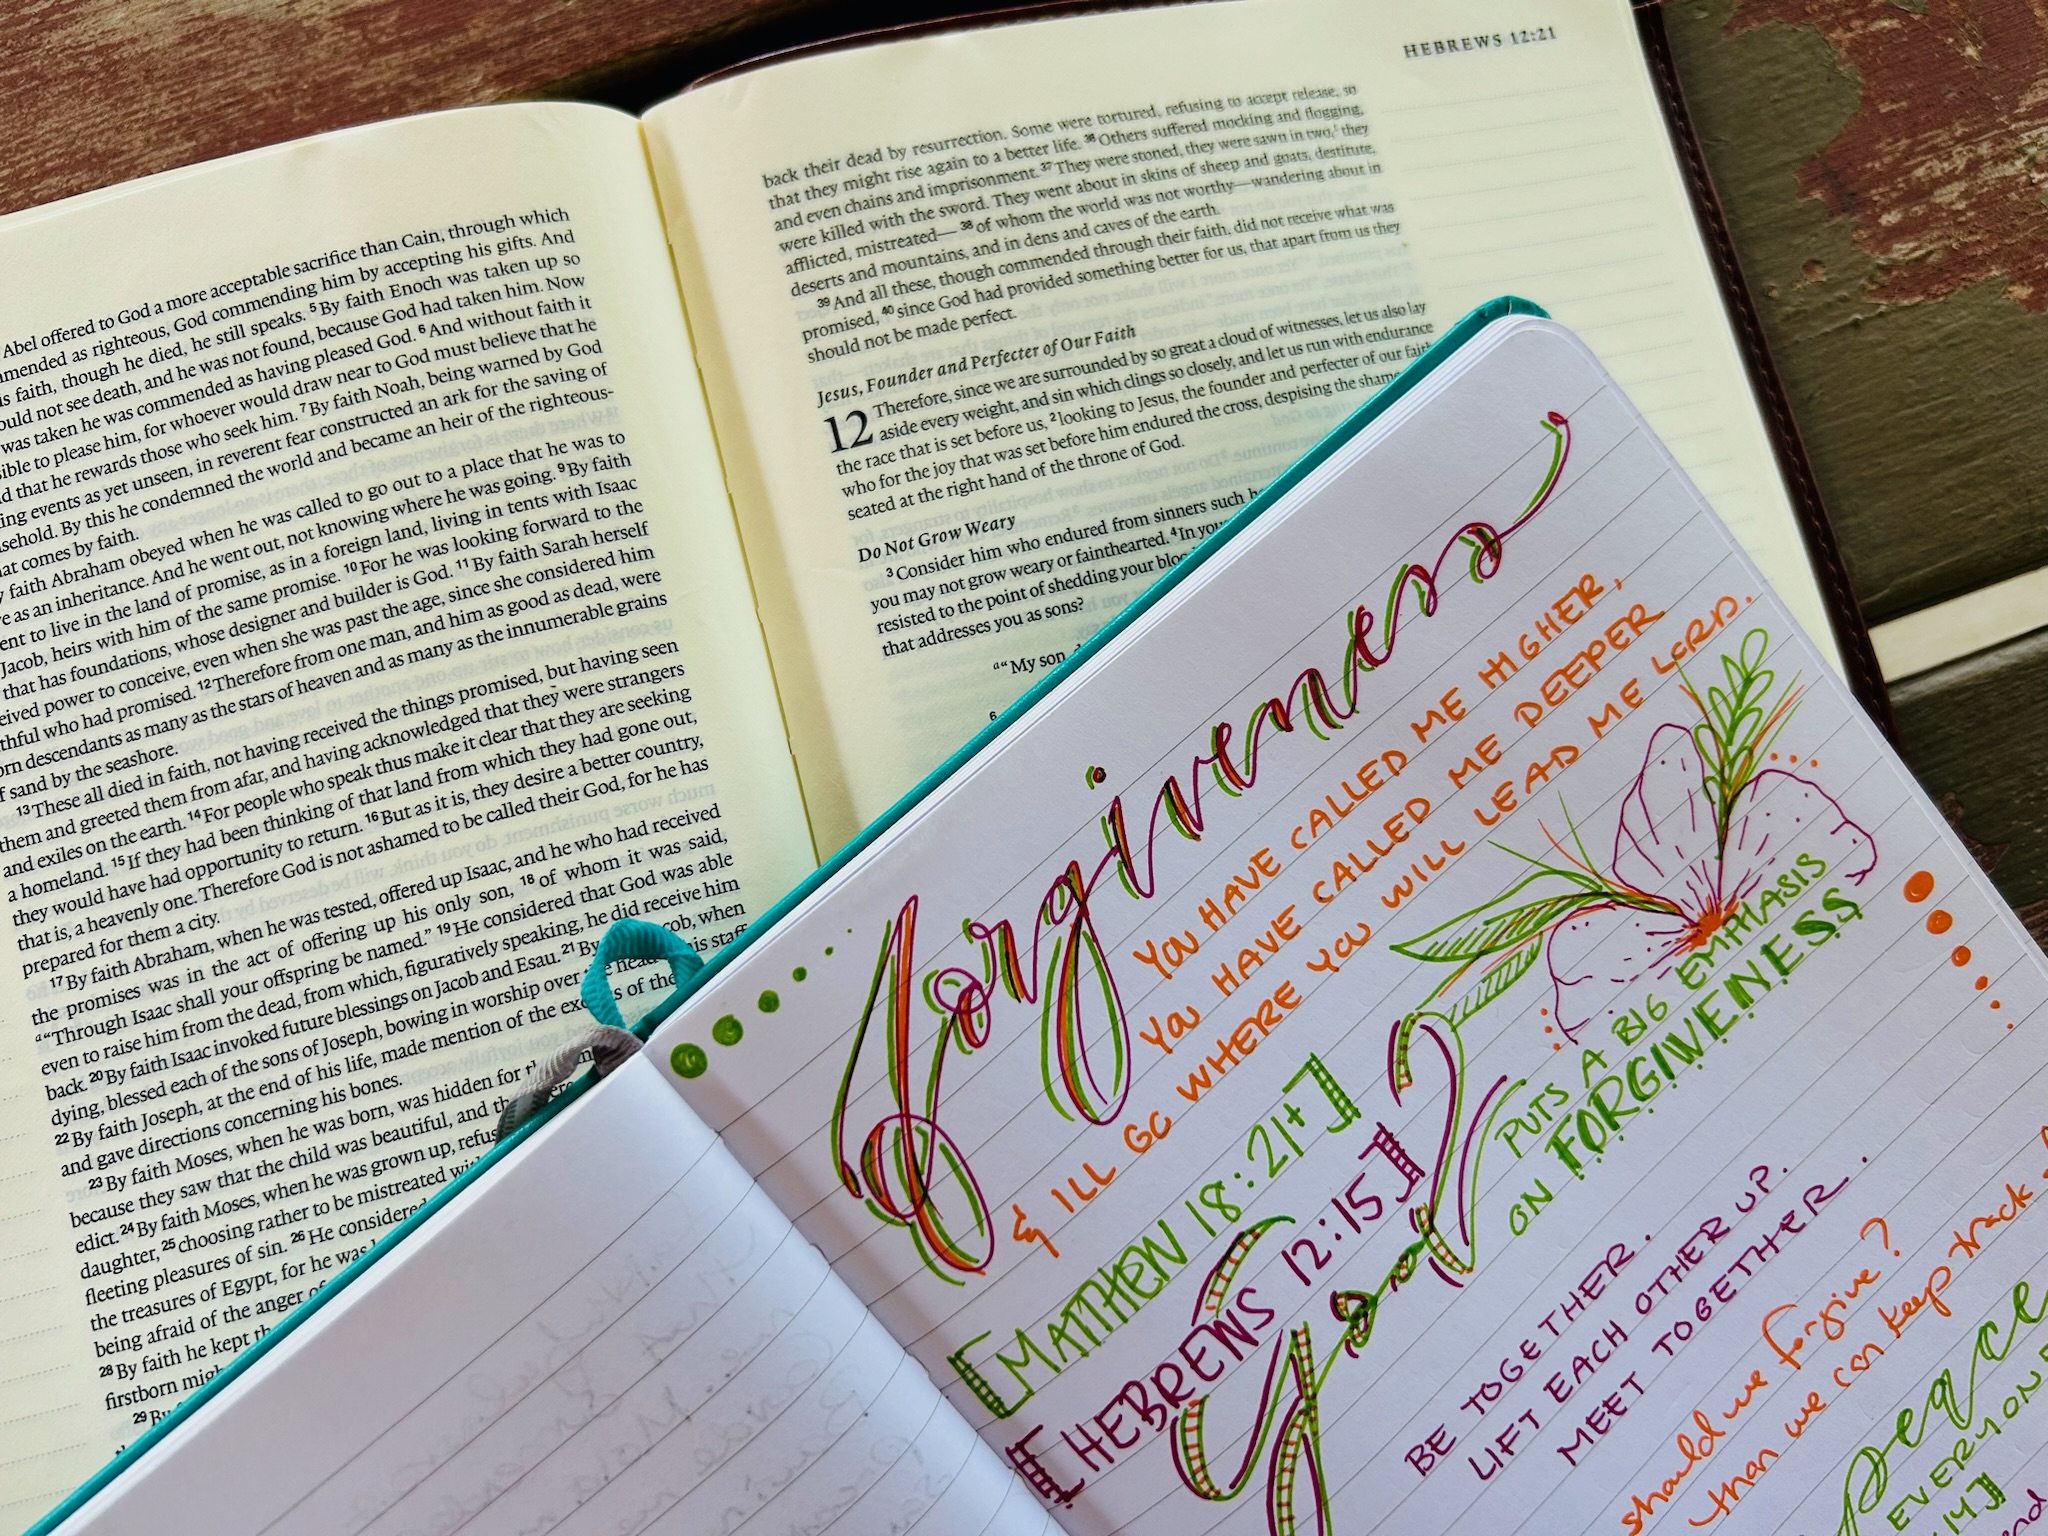 Abel offered to God a more acceptable sacrifice than Cain, through which
as righteous, God commending him by accepting his gifts. And
faith, though he died, he still speaks. 5 By faith Enoch was taken up so
not see death, and he was not found, because God had taken him. Now
was taken he was commended as having pleased God. 6 And without faith it
to please him, for whoever would draw near to God must believe that he
that he rewards those who seek him. 7 By faith Noah, being warned by God
events as yet unseen, in reverent fear constructed an ark for the saving of
By this he condemned the world and became an heir of the righteous-
comes by faith.
faith Abraham obeyed when he was called to go out to a place that he was to
as an inheritance. And he went out, not knowing where he was going. 9 By faith
to live in the land of promise, as in a foreign land, living in tents with Isaac
Jacob, heirs with him of the same promise. 10 For he was looking forward to the
that has foundations, whose designer and builder is God. 11 By faith Sarah herself
power to conceive, even when she was past the age, since she considered him
who had promised. 12 Therefore from one man, and him as good as dead, were
descendants as many as the stars of heaven and as many as the innumerable grains
sand by the seashore.
13 These all died in faith, not having received the things promised, but having seen
them and greeted them from afar, and having acknowledged that they were strangers
and exiles on the earth. 14 For people who speak thus make it clear that they are seeking
a homeland. 15 If they had been thinking of that land from which they had gone out,
they would have had opportunity to return. 16 But as it is, they desire a better country,
that is, a heavenly one. Therefore God is not ashamed to be called their God, for he has
prepared for them a city.
17 By faith Abraham, when he was tested, offered up Isaac, and he who had received
the promises was in the act of offering up his only son, 18 of whom it was said,
a“Through Isaac shall your offspring be named.” 19 He considered that God was able
even to raise him from the dead, from which, figuratively speaking, he did receive him
back. 20 By faith Isaac invoked future blessings on Jacob and Esau. 21 By when
dying, blessed each of the sons of Joseph, bowing in worship over head his staff
22 By faith Joseph, at the end of his life, made mention of the of the
and gave directions concerning his bones.
23 By faith Moses, when he was born, was hidden for
because they saw that the child was beautiful, and
edict. 24 By faith Moses, when he was grown up,
daughter, 25 choosing rather to be mistreated
fleeting pleasures of sin. 26 He considered
the treasures of Egypt, for he was
being afraid of the anger
28 By faith he kept
firstborn
29 By
HEBREWS 12:21
back their dead by resurrection. Some were tortured, refusing to accept release, so
that they might rise again to a better life. 36 Others suffered mocking and flogging,
and even chains and imprisonment. 37 They were stoned, they were sawn in two, they
were killed with the sword. They went about in skins of sheep and goats, destitute,
afflicted, mistreated— 38 of whom the world was not worthy—wandering about in
deserts and mountains, and in dens and caves of the earth.
39 And all these, though commended through their faith, did not receive what was
promised, 40 since God had provided something better for us, that apart from us they
should not be made perfect.
Jesus, Founder and Perfecter of Our Faith
12 Therefore, since we are surrounded by so great a cloud of witnesses, let us also lay
aside every weight, and sin which clings so closely, and let us run with endurance
the race that is set before us, 2 looking to Jesus, the founder and perfecter of our faith,
who for the joy that was set before him endured the cross, despising the shame
seated at the right hand of the throne of God.
Do Not Grow Weary
3 Consider him who endured from sinners such
you may not grow weary or fainthearted. 4 In your
resisted to the point of shedding your
that addresses you as sons?
a“My son,
6
forgiveness
YOU HAVE CALLED ME HIGHER,
YOU HAVE CALLED ME DEEPER
& ILL GO WHERE YOU WILL LEAD ME LORD.
[MATTHEW 18:21+]
[HEBREWS 12:15]
God
PUTS A BIG EMPHASIS
ON FORGIVENESS
BE TOGETHER.
LIFT EACH OTHER UP.
MEET TOGETHER.
should we forgive?
than we can keep track
peace
EVERYONE
14]